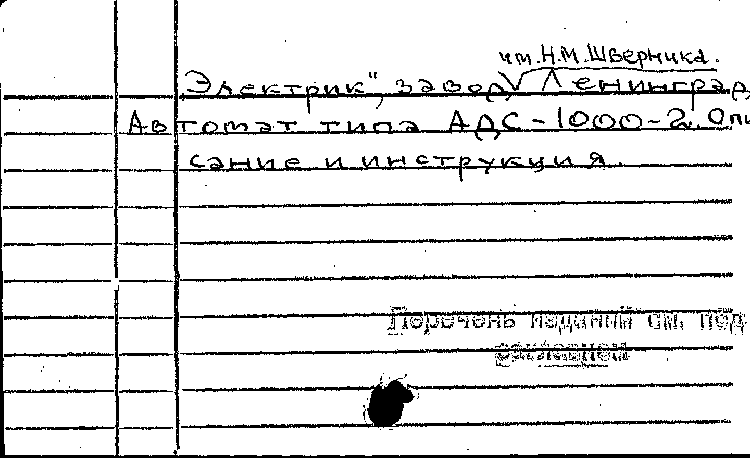 им. Н.М. Шверника.
Электрик", завод Ленинград
Автомат типа АДС-1000-2. Опи
сание и инструкция.
Перечень изданий см. под
заглавием